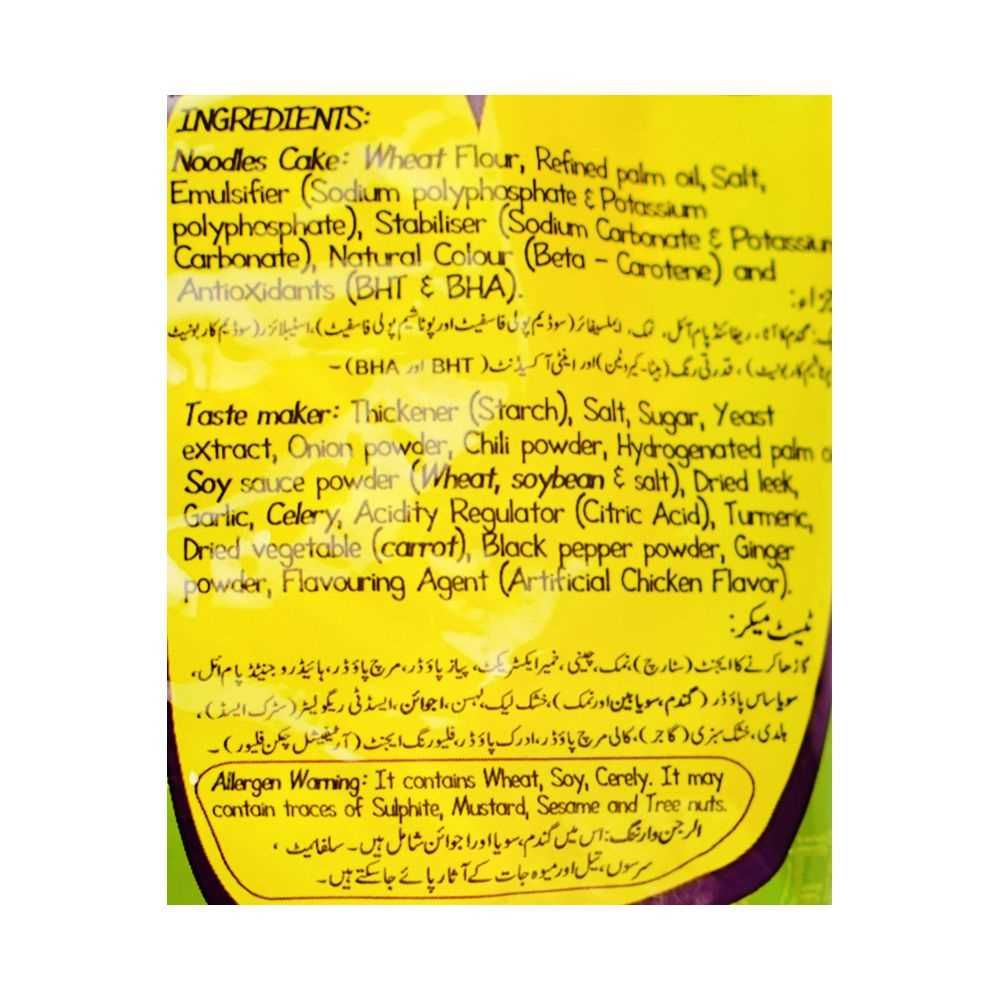 INGREDIENTS:
Noodles Cake: Wheat Flour, Refined palm oil, Salt,
Emulsifier (Sodium polyphosphate & Potassium
polyphosphate), Stabiliser (Sodium Carbonate & Potassium
Carbonate), Natural Colour (Beta - Carotene) and
Antioxidants (BHT & BHA).
گندم کا آٹا، ریفائنڈ پام آئل، نمک، ایملسیفائر (سوڈیم پولی فاسفیٹ اور پوٹاشیم پولی فاسفیٹ)، اسٹیبلائزر (سوڈیم کاربونیٹ
قدرتی رنگ (بیٹا-کیروٹین) اور اینٹی آکسیڈنٹ (BHT اور BHA)۔
Taste maker: Thickener (Starch), Salt, Sugar, Yeast
extract, Onion powder, Chili powder, Hydrogenated palm
Soy sauce powder (Wheat, soybean & salt), Dried leek,
Garlic, Celery, Acidity Regulator (Citric Acid), Turmeric,
Dried vegetable (carrot), Black pepper powder, Ginger
powder, Flavouring Agent (Artificial Chicken Flavor).
ٹیسٹ میکر:
گاڑھا کرنے کا ایجنٹ (سٹارچ) نمک، چینی، خمیر ایکسٹریکٹ، پیاز پاؤڈر، مرچ پاؤڈر، ہائیڈروجنیٹڈ پام آئل،
سویا ساس پاؤڈر (گندم، سویابین اور نمک)، خشک لیک، لہسن، اجوائن، ایسڈٹی ریگولیٹر (سٹرک ایسڈ)،
ہلدی، خشک سبزی (گاجر)، کالی مرچ پاؤڈر، ادرک پاؤڈر، فلیورنگ ایجنٹ (آرٹیفیشل چکن فلیور)۔
Allergen Warning: It contains Wheat, Soy, Cerely. It may
contain traces of Sulphite, Mustard, Sesame and Tree nuts.
الرجن وارننگ: اس میں گندم، سویا اور اجوائن شامل ہیں۔ سلفائیٹ،
سرسوں، تیل اور میوہ جات کے آثار پائے جا سکتے ہیں۔